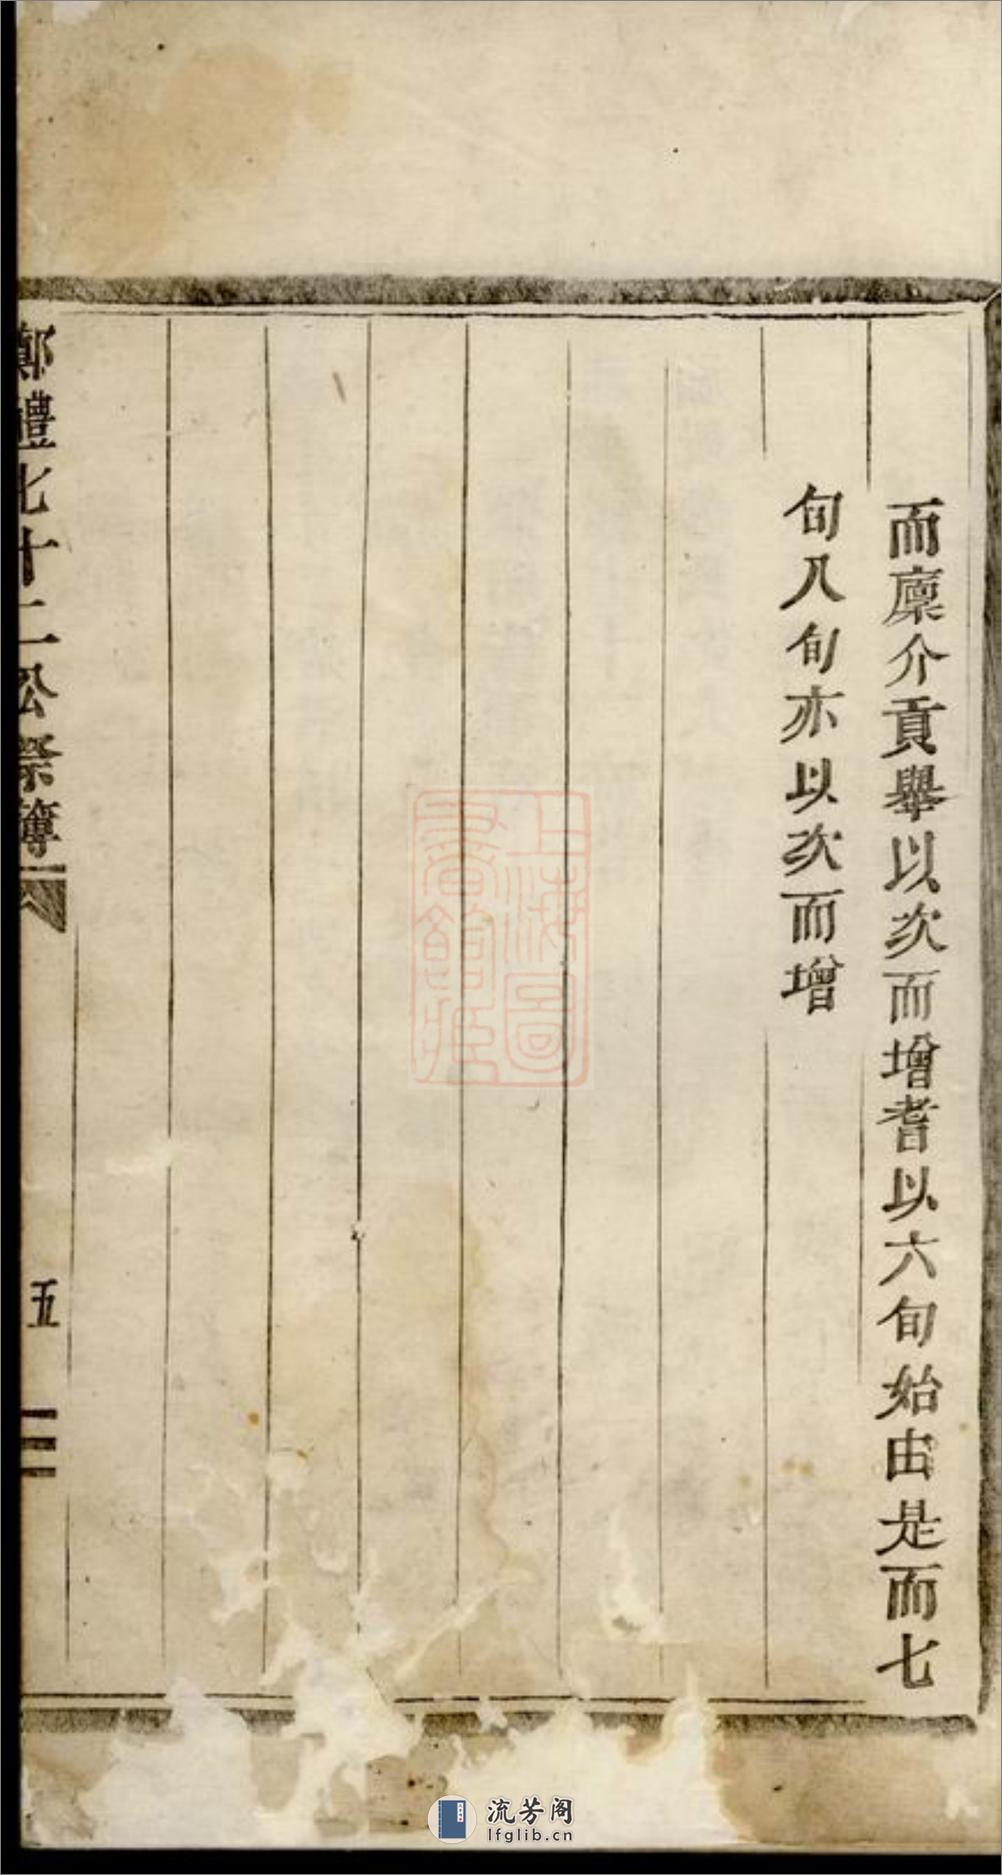 而廩介貢舉以次而增耆以六旬始由是而七
旬八旬亦以次而增
鄭禮七十二公祭簿
五
上海圖書館藏
流芳阁
lfglib.cn